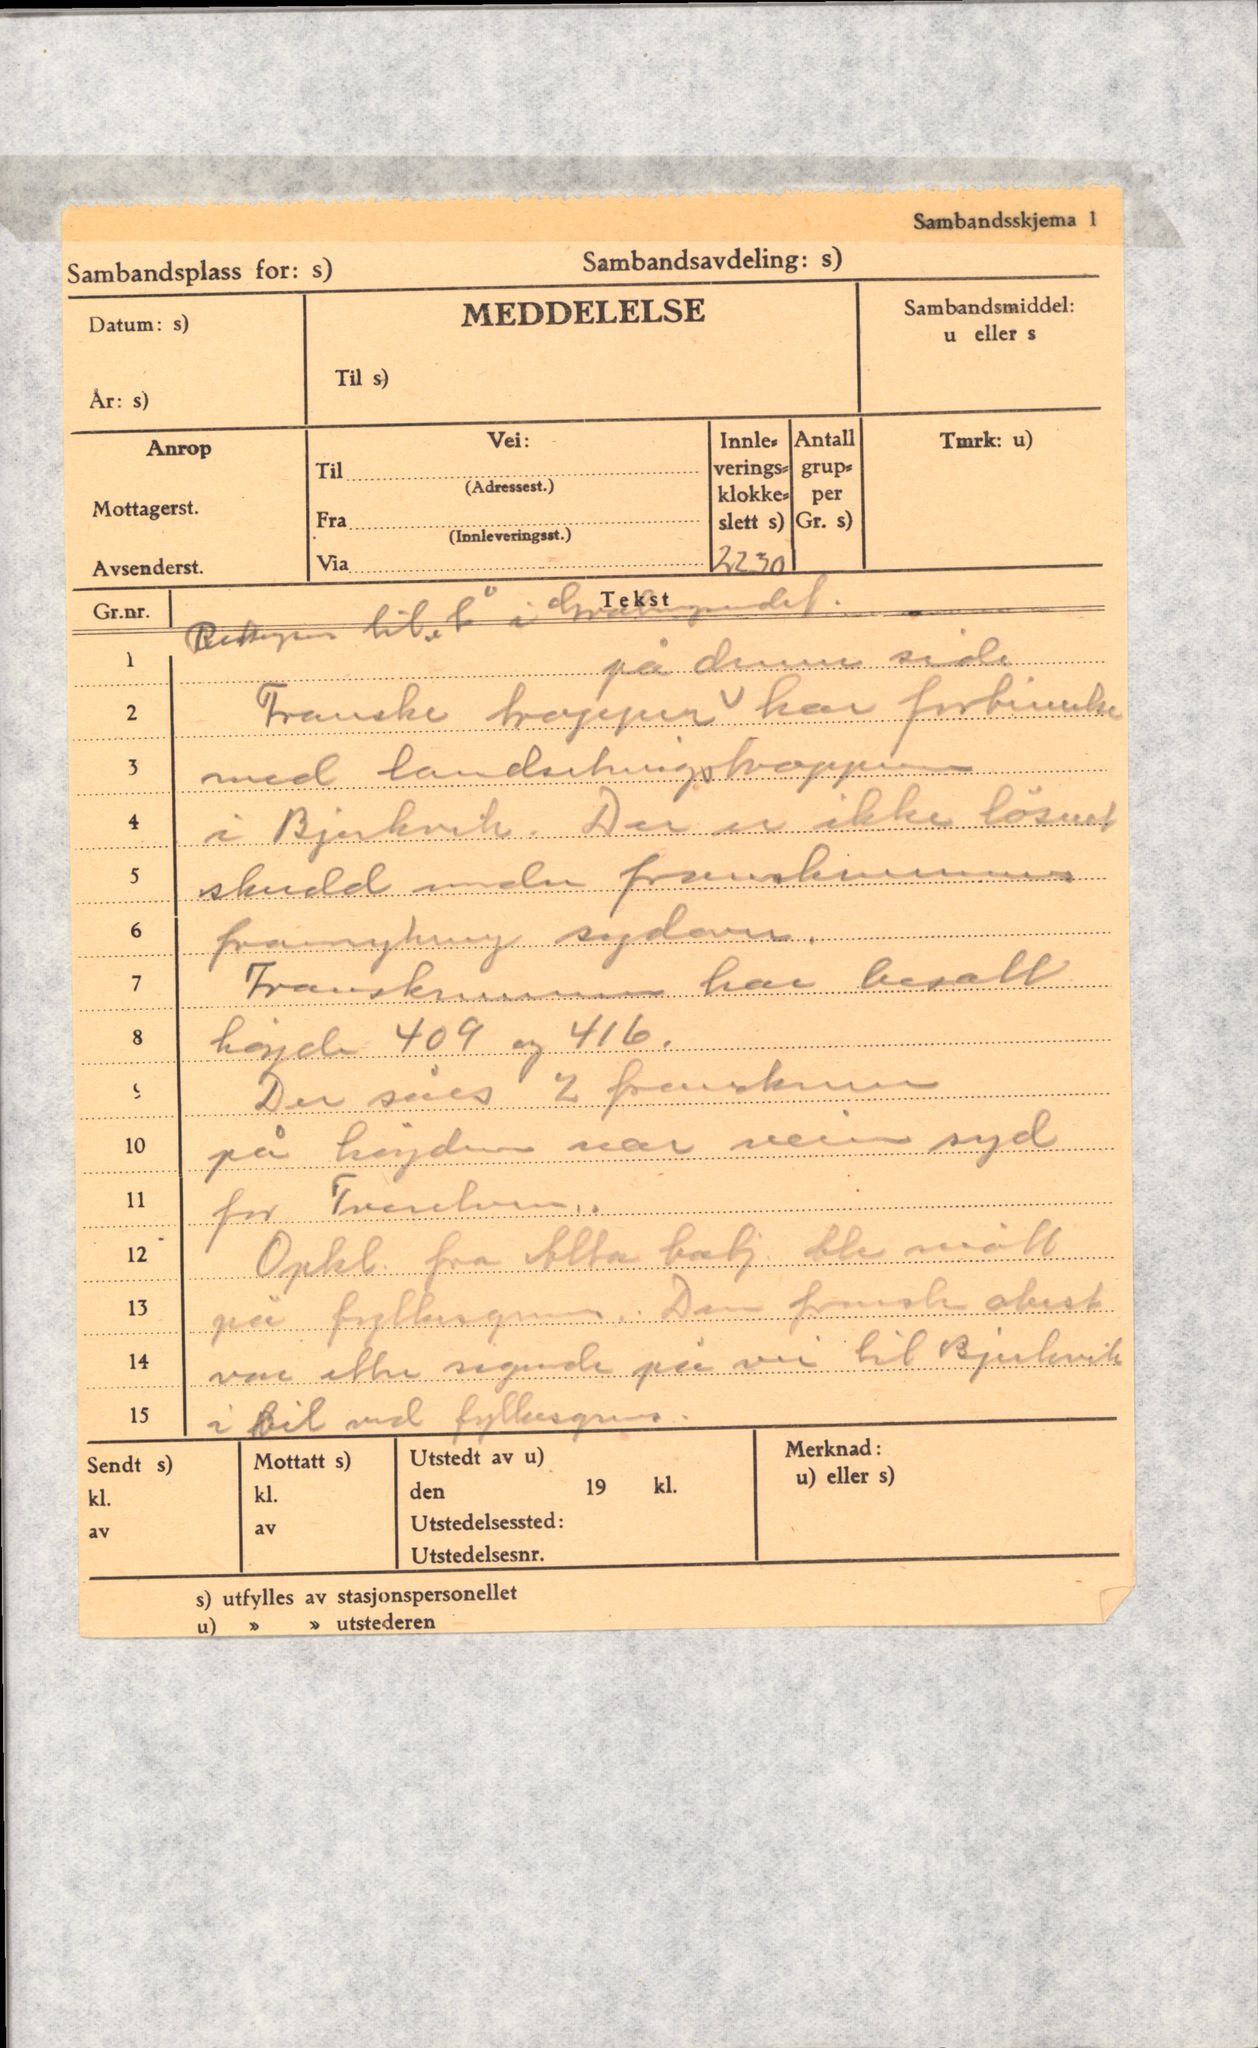 Sambandsskjema 1
Sambandsplass for: s) Sambandsavdeling: s)
Datum: s)
År: s)
MEDDELELSE
Til s)
Sambandsmiddel:
u eller s
Anrop
Mottagerst.
Avsenderst.
Vei:
Til
(Adressest.)
Fra
(Innleveringsst.)
Via
Innle-
verings-
klokke-
slett s)
2230
Antall
grup-
per
Gr. s)
Tmrk: u)
Gr.nr. Tekst
til i
1 på denne side
2 Franske tropper har forbindelse
3 med landsetningstroppene
4 i Bjerkvik. Der er ikke løsnet
5 skudd under franskmennenes
6 framrykning sydover.
7 Franskmennene har besatt
8 høyde 409 og 416.
9 Der såes 2 franskmenn
10 på høyden nær veien syd
11 for Tverelven.
12 Opkl. fra Alta batj. ble møtt
13 på fylkesgrensen. Den franske oberst
14 var etter sigende på vei til Bjerkvik
15 i bil ved fylkesgrens.
Sendt s)
kl.
av
Mottatt s)
kl.
av
Utstedt av u)
den 19 kl.
Utstedelsessted:
Utstedelsesnr.
Merknad:
u) eller s)
s) utfylles av stasjonspersonellet
u) » » utstederen